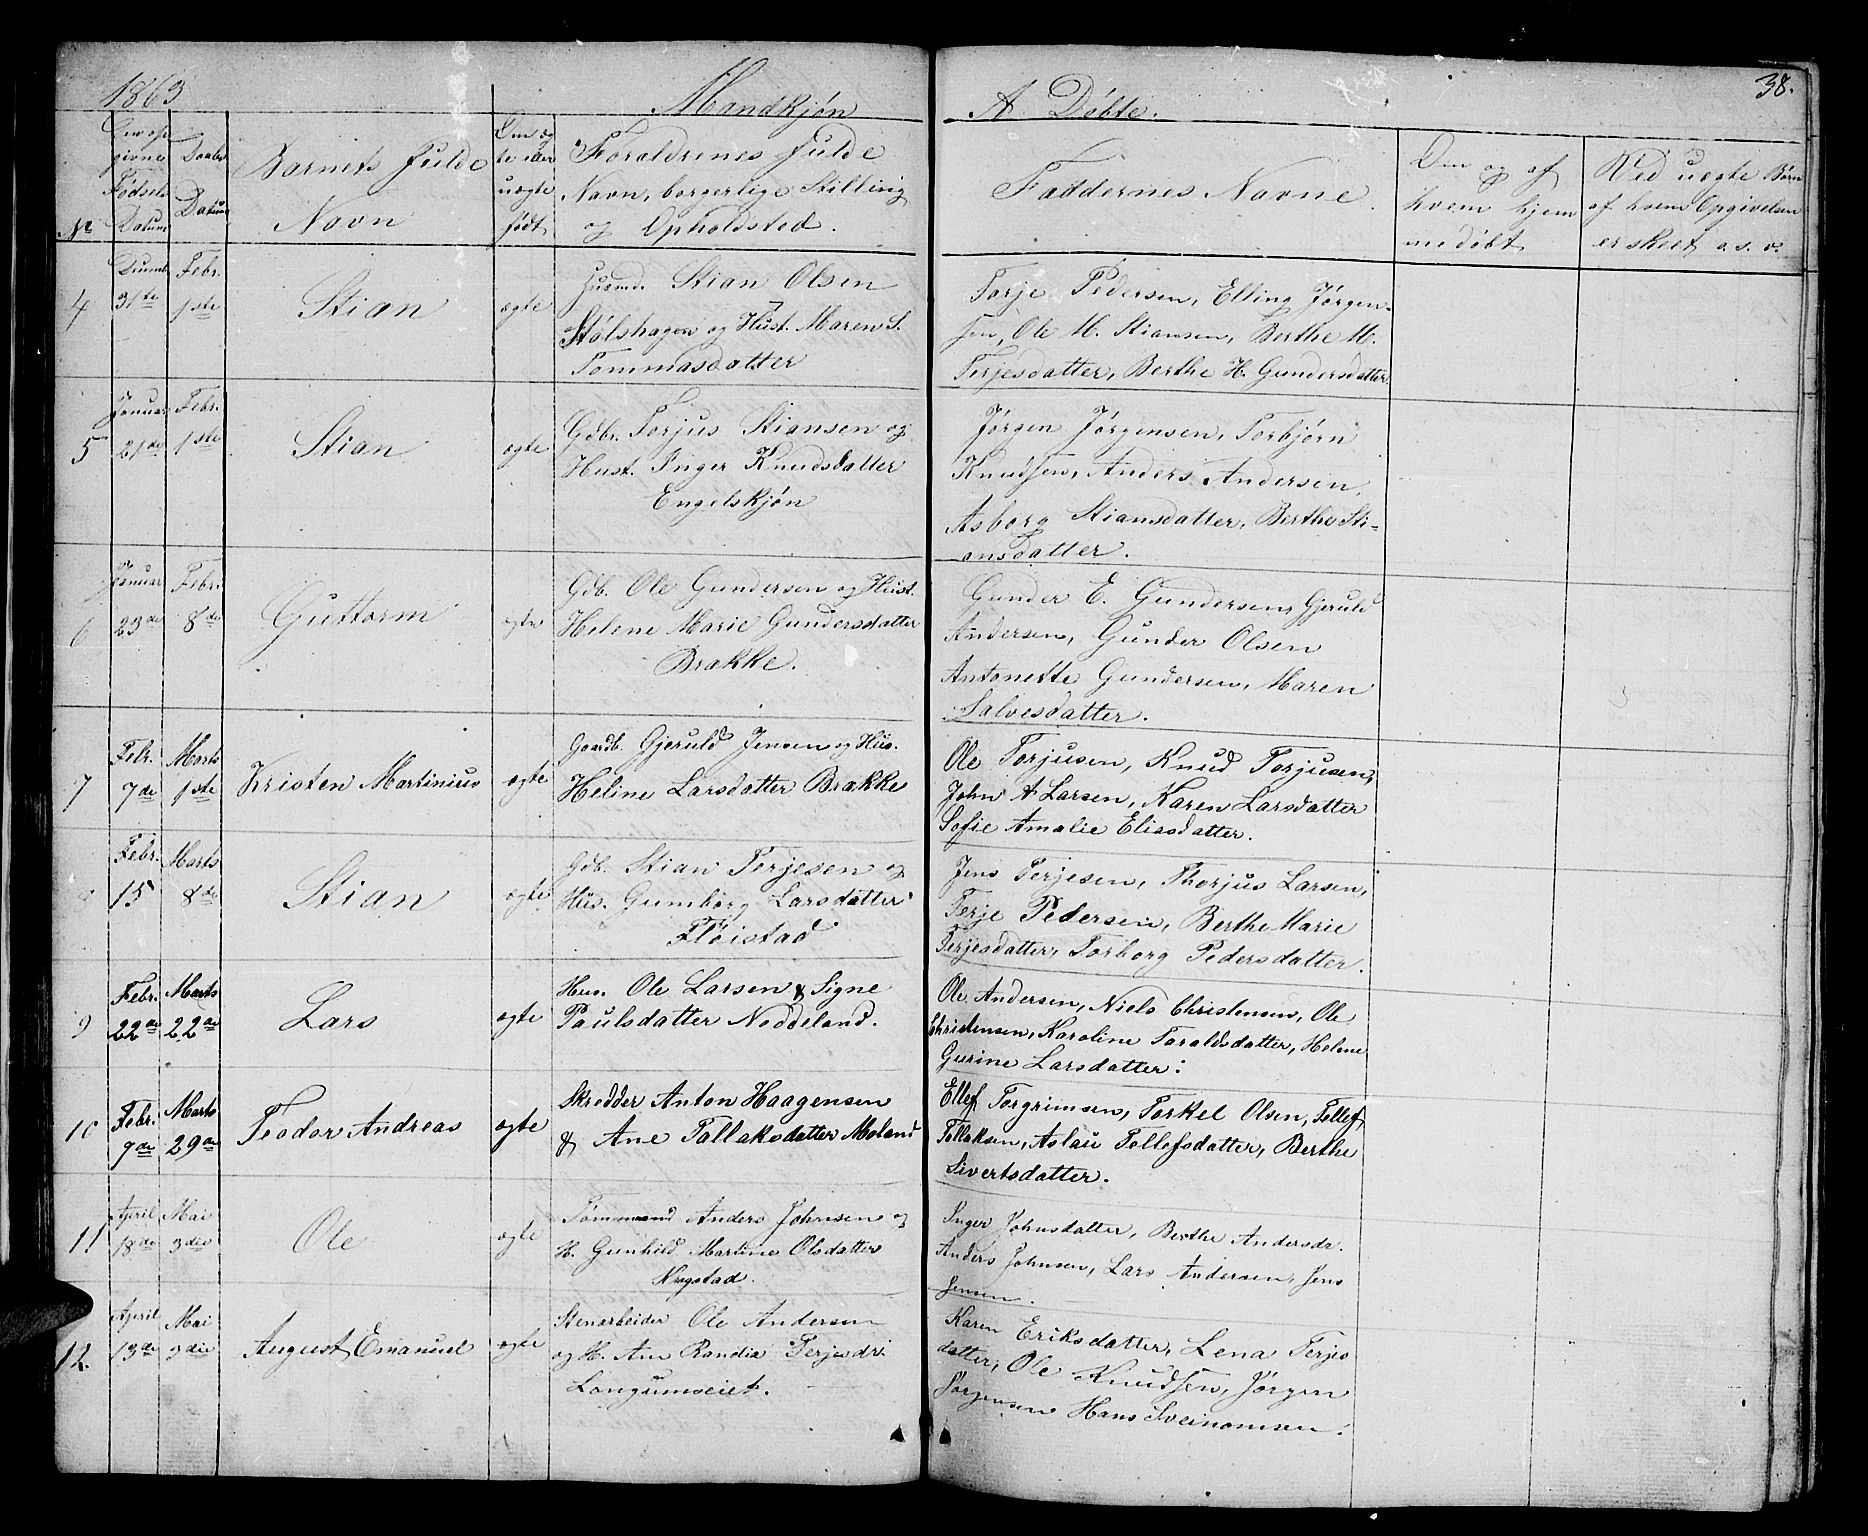 1863 Mandkjøn A Døbte. 38.
№
Den op
givne
Fødsels
Datum
Daabs
Datum
Barnets fulde
Navn
Om æg
te eller
uægte
født
Forældrenes fulde
Navn, borgerlige Stilling
og Opholdsted.
Faddernes Navne.
Om og af
hvem hjem
medøbt
Ved uægte Børn
af hvem Opgivelsen
er skeet o. s. v.
4
31te
Febr.
1ste
Stian
ægte
Huusmd. Stian Olsen
Stølshagen og Hust. Maren S.
Tommasdatter
Torje Pedersen, Elling Jørgen-
sen, Ole M. Stiansen, Berthe M.
Terjesdatter, Berthe H. Gundersdatter
5
Januar
21de
Febr.
1ste
Stian
ægte
Gdbr. Torjus Stiansen og
Hust. Inger Knudsdatter
Engelskjøn
Jørgen Jørgensen, Torbjørn
Knudsen, Anders Andersen,
Asborg Stiansdatter, Berthe Sti-
ansdatter.
6
Januar
23de
Febr.
8de
Guttorm
ægte
Gdb. Ole Gundersen og Hust.
Helene Marie Gundersdatter
Brække.
Gunder E. Gundersen, Gjeruld
Andersen, Gunder Olsen
Antonette Gundersen, Maren
Salvesdatter.
7
Febr.
7de
Marts
1ste
Kristen Martinius
ægte
Gaardb. Gjeruld Jensen og Hus.
Heline Larsdatter Brække
Ole Torjusen, Knud Torjusen,
John A Larsen, Karen Larsdatter
Sofie Amalie Eliasdatter.
8
Febr.
15
Marts
8de
Stian
ægte
Gdb. Stian Terjesen og
Hus. Gumborg Larsdatter
Fløistad
Jens Terjesen, Thorjus Larsen,
Terje Pedersen, Berthe Marie
Terjesdatter, Torborg Pedersdatter.
9
Febr.
22de
Marts
22de
Lars
ægte
Hus. Ole Larsen & Signe
Paulsdatter Noddeland.
Ole Andersen, Niels Christensen, Ole
Christensen, Karoline Taraldsdatter, Helene
Gurine Larsdatter.
10
Febr.
7de
Marts
29de
Teodor Andreas
ægte
Skredder Anton Haagensen
& Ane Tallaksdatter Moland
Ellef Torgrimsen, Torkel Olsen, Tollef
Tollaksen, Aslau Tollefsdatter, Berthe
Sivertsdatter.
11
April
18de
Mai
3die
Ole
ægte
Tømmermand Anders Johnsen og
H. Gunhild Martine Olsdatter
Næstad.
Inger Johnsdatter, Berthe Andersdr.
Anders Johnsen, Lars Andersen, Jens
Jensen.
12.
April
13de
Mai
3die
August Emanuel
ægte
Stenarbeider Ole Andersen
og H. Ane Randia Terjesdr.
Langumseiet.
Karen Eriksdatter, Lena Terjes
datter, Ole Knudsen, Jørgen
Jørgensen Hans Sveinomsen.